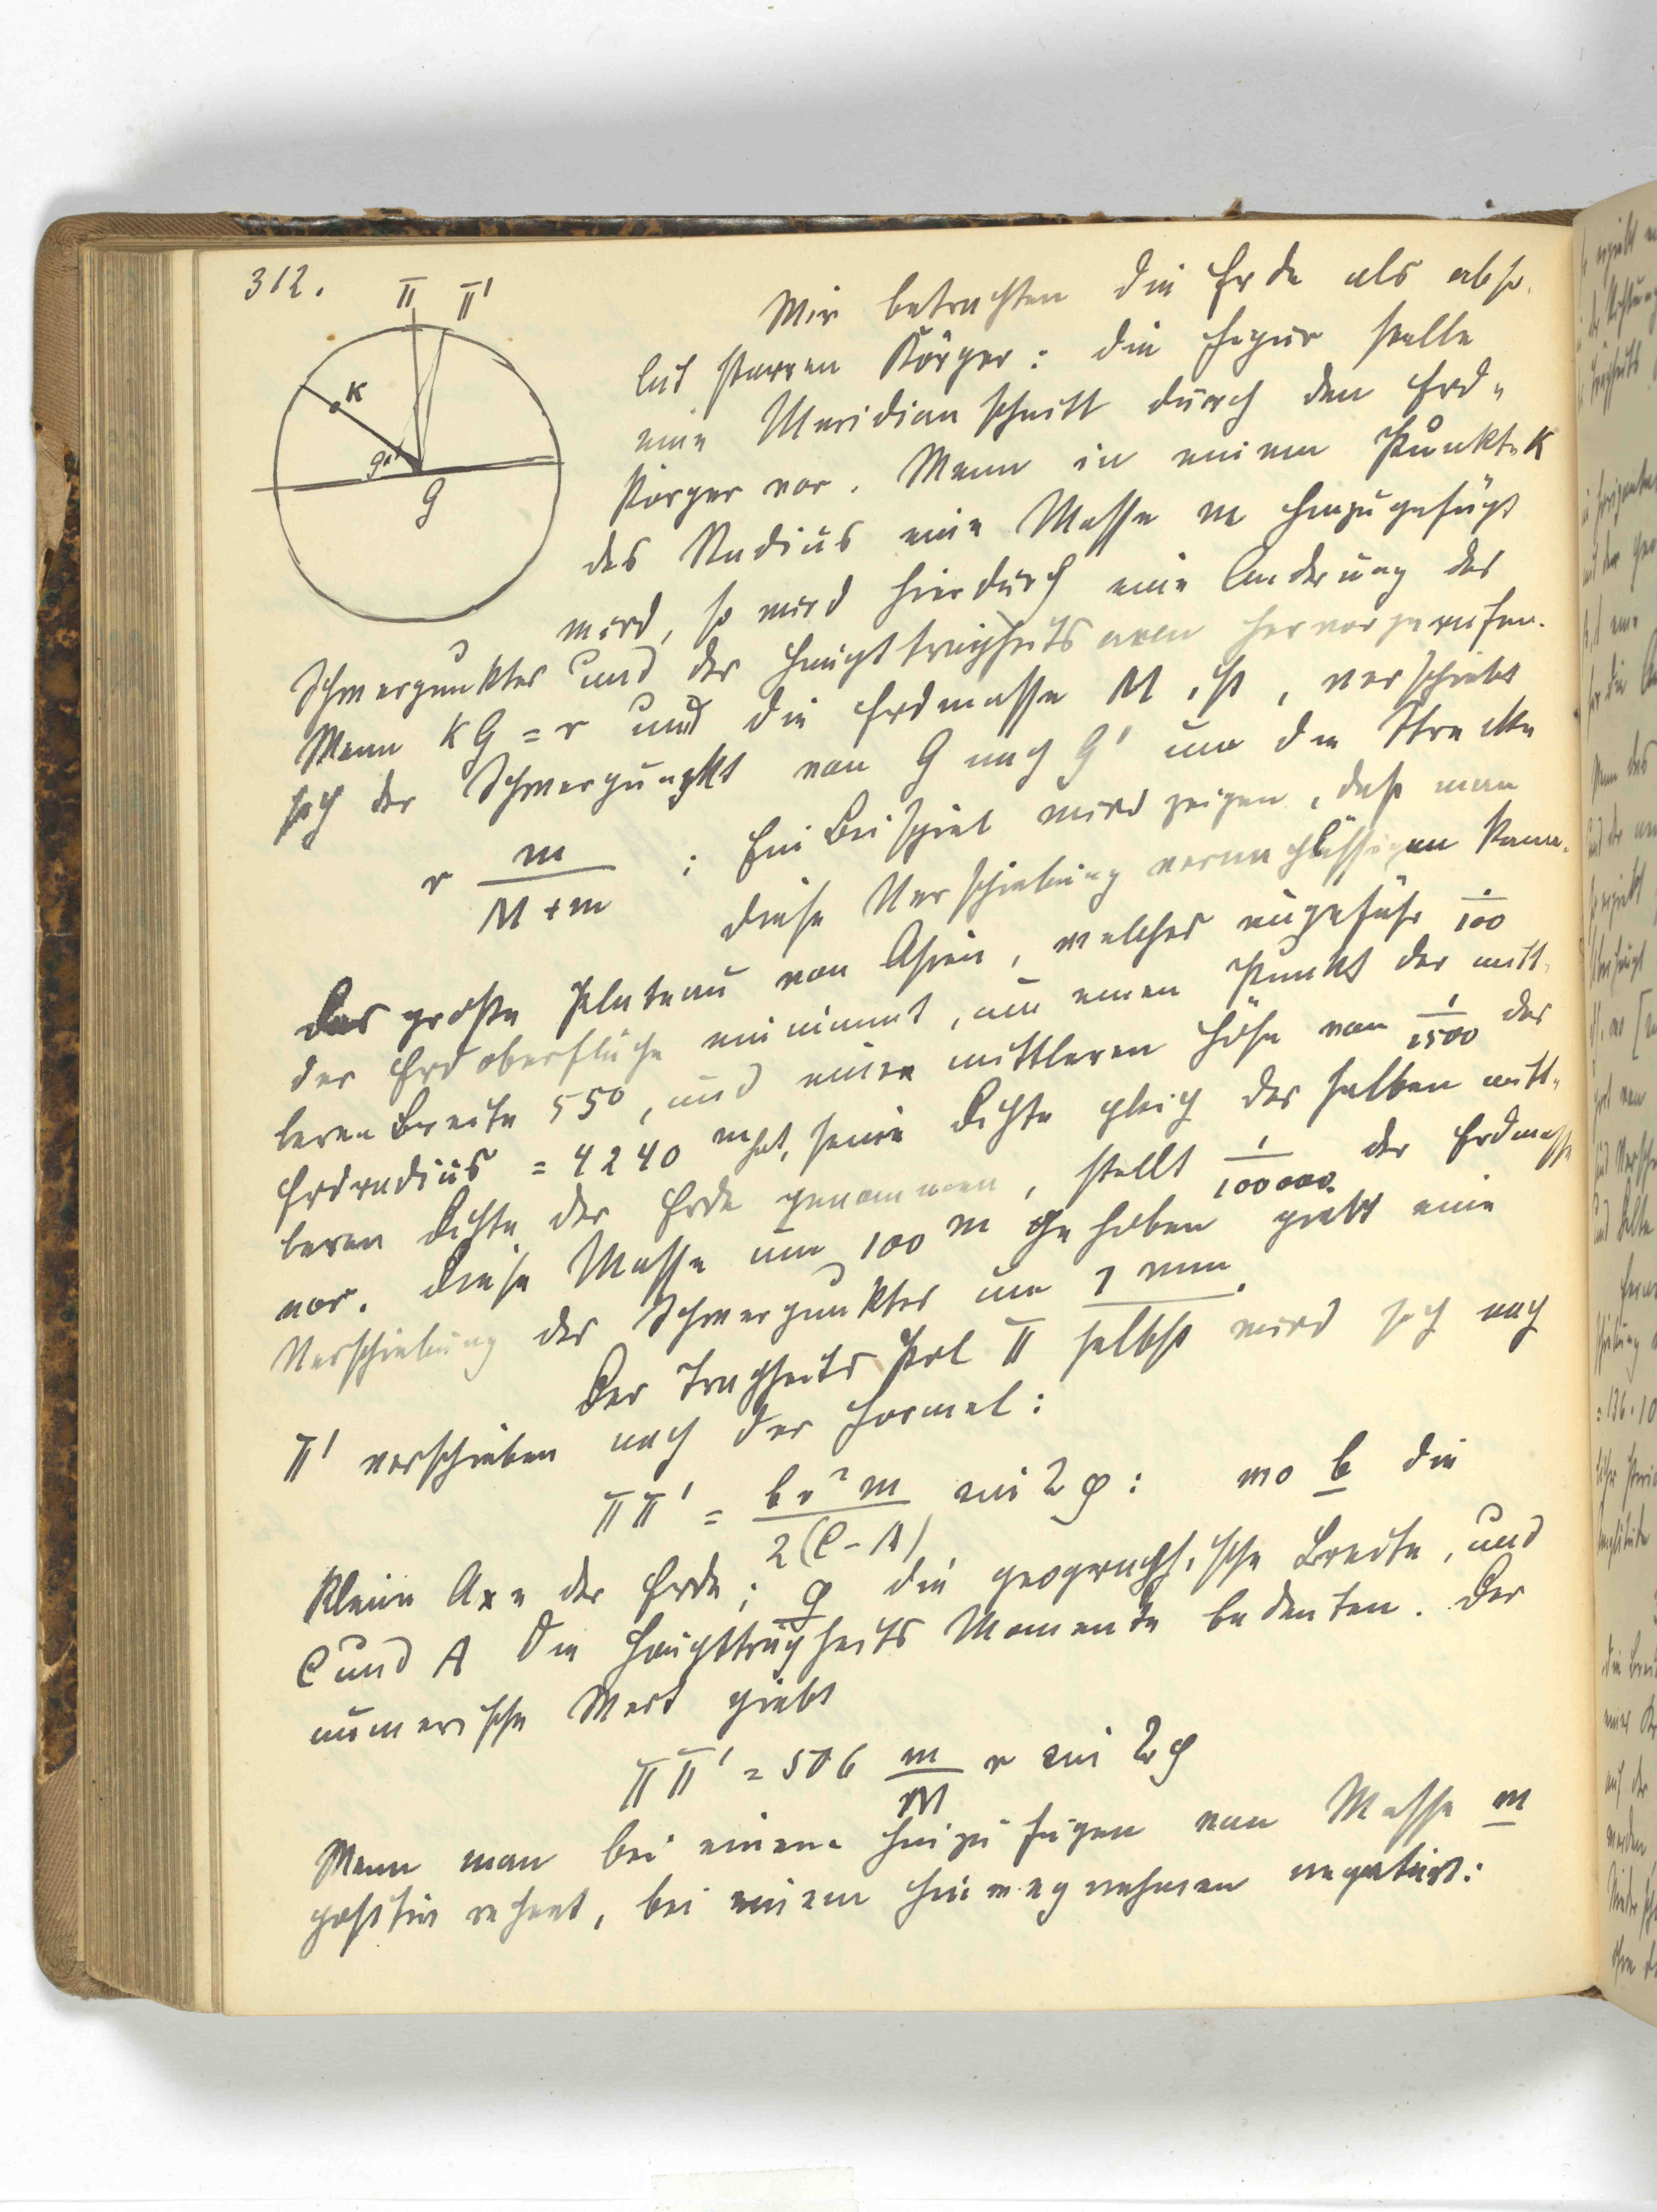 312.
Π Π'
K
G'
G
Wir betrachten die Erde als abso-
lut starren Körper: die Figur stelle
eine Meridianschnitt durch den Erd-
körper vor. Wenn in einem Punkte K
des Radius eine Masse m hinzugefügt
wird, so wird hierdurch eine Anderung des
Schwerpunktes und der Haupttragheitsaxen hervorgerufen.
Wenn KG = r und die Erdmasse M ist, verschiebt
sich der Schwerpunkt von G nach G' um die Strecke
r m/(M+m) ; Ein Beispiel wird zeigen, daß man
diese Verschiebung vernachlässigen kann.
Das große Plateau von Asien, welches ungefähr 1/100
der Erdoberfläche einnimmt, um einen Punkt der mitt-
leren Breite 55°, und einer mittleren Höhe von 1/1500 des
Erdradius = 4240 m hat, seine Dichte gleich der halben mitt-
leren Dichte der Erde genommen, stellt 1/100000 der Erdmasse
vor. Diese Masse um 100 m gehoben giebt eine
Verschiebung des Schwerpunktes um 1 mm.
Der Tragheits Pol Π selbst wird sich nach
Π' verschieben nach der Formel:
ΠΠ' = b r² m / 2(C-A) sin 2φ : wo b die
kleine Axe der Erde; φ die geographische Breite, und
C und A die Haupttragheits Momente bedeuten. Der
numerische Wert giebt
ΠΠ' = 506 m/M r sin 2φ
Wenn man bei einem hinzufugen von Masse m
positiv rechnet, bei einem hinwegnehmen negativ: